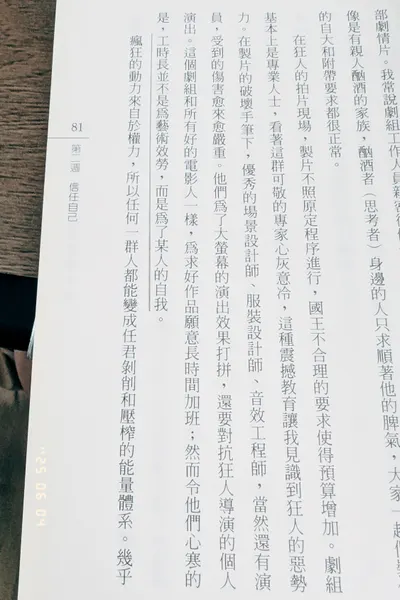 部劇情片。我常說劇組工作人員
像是有親人酗酒的家族,酗酒者(思考者)身邊的人只求順著他的脾氣,大家一起
的自大和附帶要求都很正常。
在狂人的拍片現場,製片不照原定程序進行,國王不合理的要求使得預算增加。劇組
基本上是專業人士,看著這群可敬的專家心灰意冷,這種震撼教育讓我見識到狂人的惡勢
力。在製片的破壞手筆下,優秀的場景設計師、服裝設計師、音效工程師,當然還有演
員,受到的傷害愈來愈嚴重。他們為了大螢幕的演出效果打拼,還要對抗狂人導演的個人
演出。這個劇組和所有好的電影人一樣,為求好作品願意長時間加班;然而令他們心寒的
是,工時長並不是為藝術效勞,而是為了某人的自我。
瘋狂的動力來自於權力,所以任何一群人都能變成任君剝削和壓榨的能量體系。幾乎
81
第二週 信任自己
'25 06 04